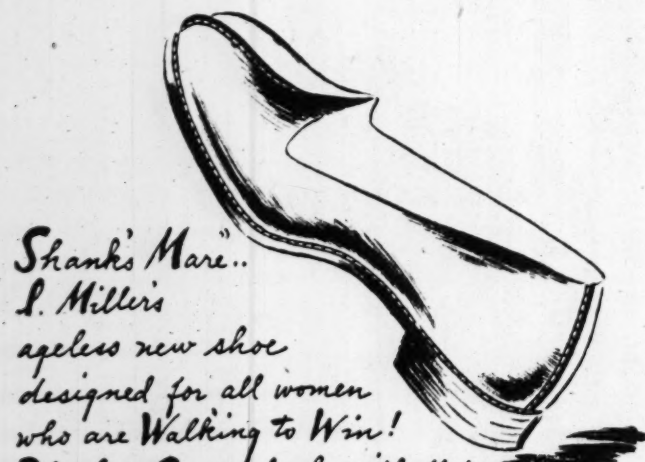 Shank's Mare"..
I. Miller's
ageless new shoe
designed for all women
who are Walking to Win!